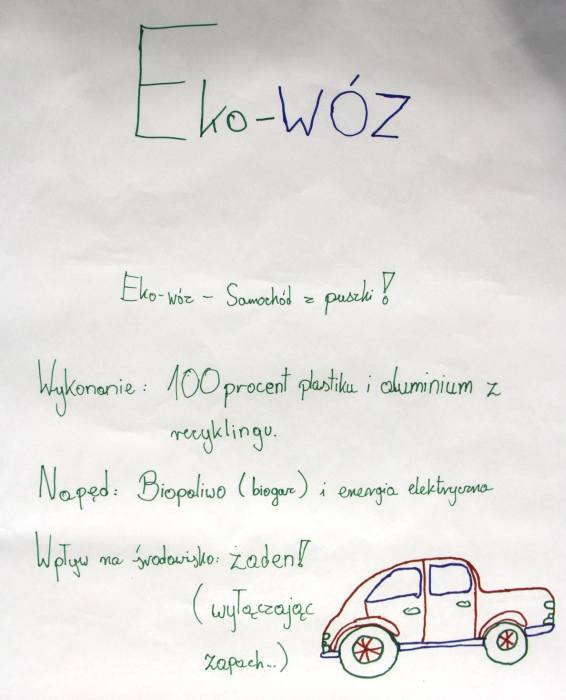 Eko-WÓZ
Eko-wóz - Samochód z puszki!
Wykonanie: 100 procent plastiku i aluminium z
recyklingu.
Napęd: Biopaliwo (biogaz) i energia elektryczna
Wpływ na środowisko: żaden!
(wyłączając
zapach..)